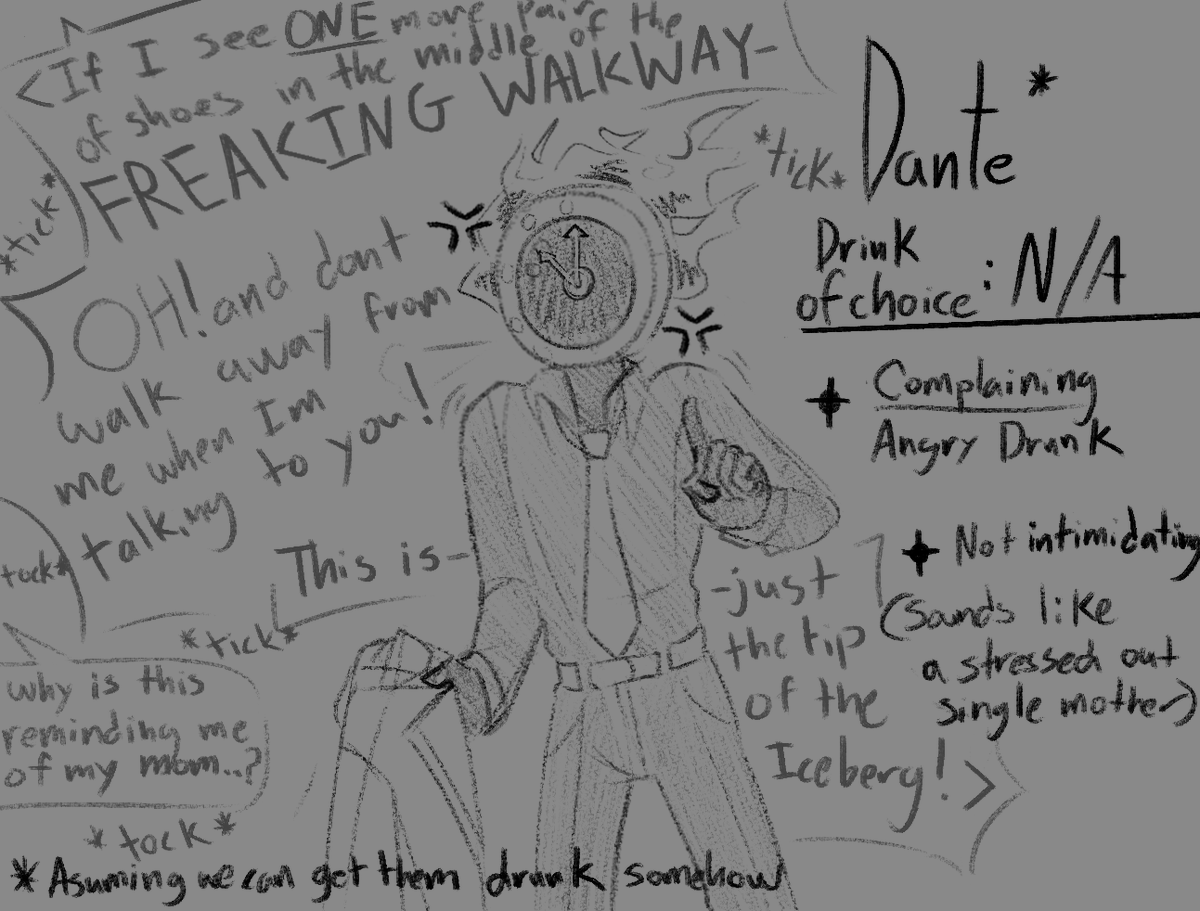 <If I see ONE more pair
of shoes in the middle of the
FREAKING WALKWAY-
*tick*
*tick*
OH! and dont
walk away from
me when Im
talking to you!
tock*
This is-
*tick*
-just
the tip
of the
Iceberg!>
why is this
reminding me
of my mom..?
*tock*
Dante*
Drink
of choice: N/A
Complaining
Angry Drunk
Not intimidating
(Sounds like
a stressed out
single mother)
*Asuming we can get them drunk somehow